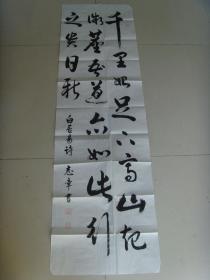 千里始足下高山起
微尘吾道亦如此行
之贵日新
白居易诗 志章书